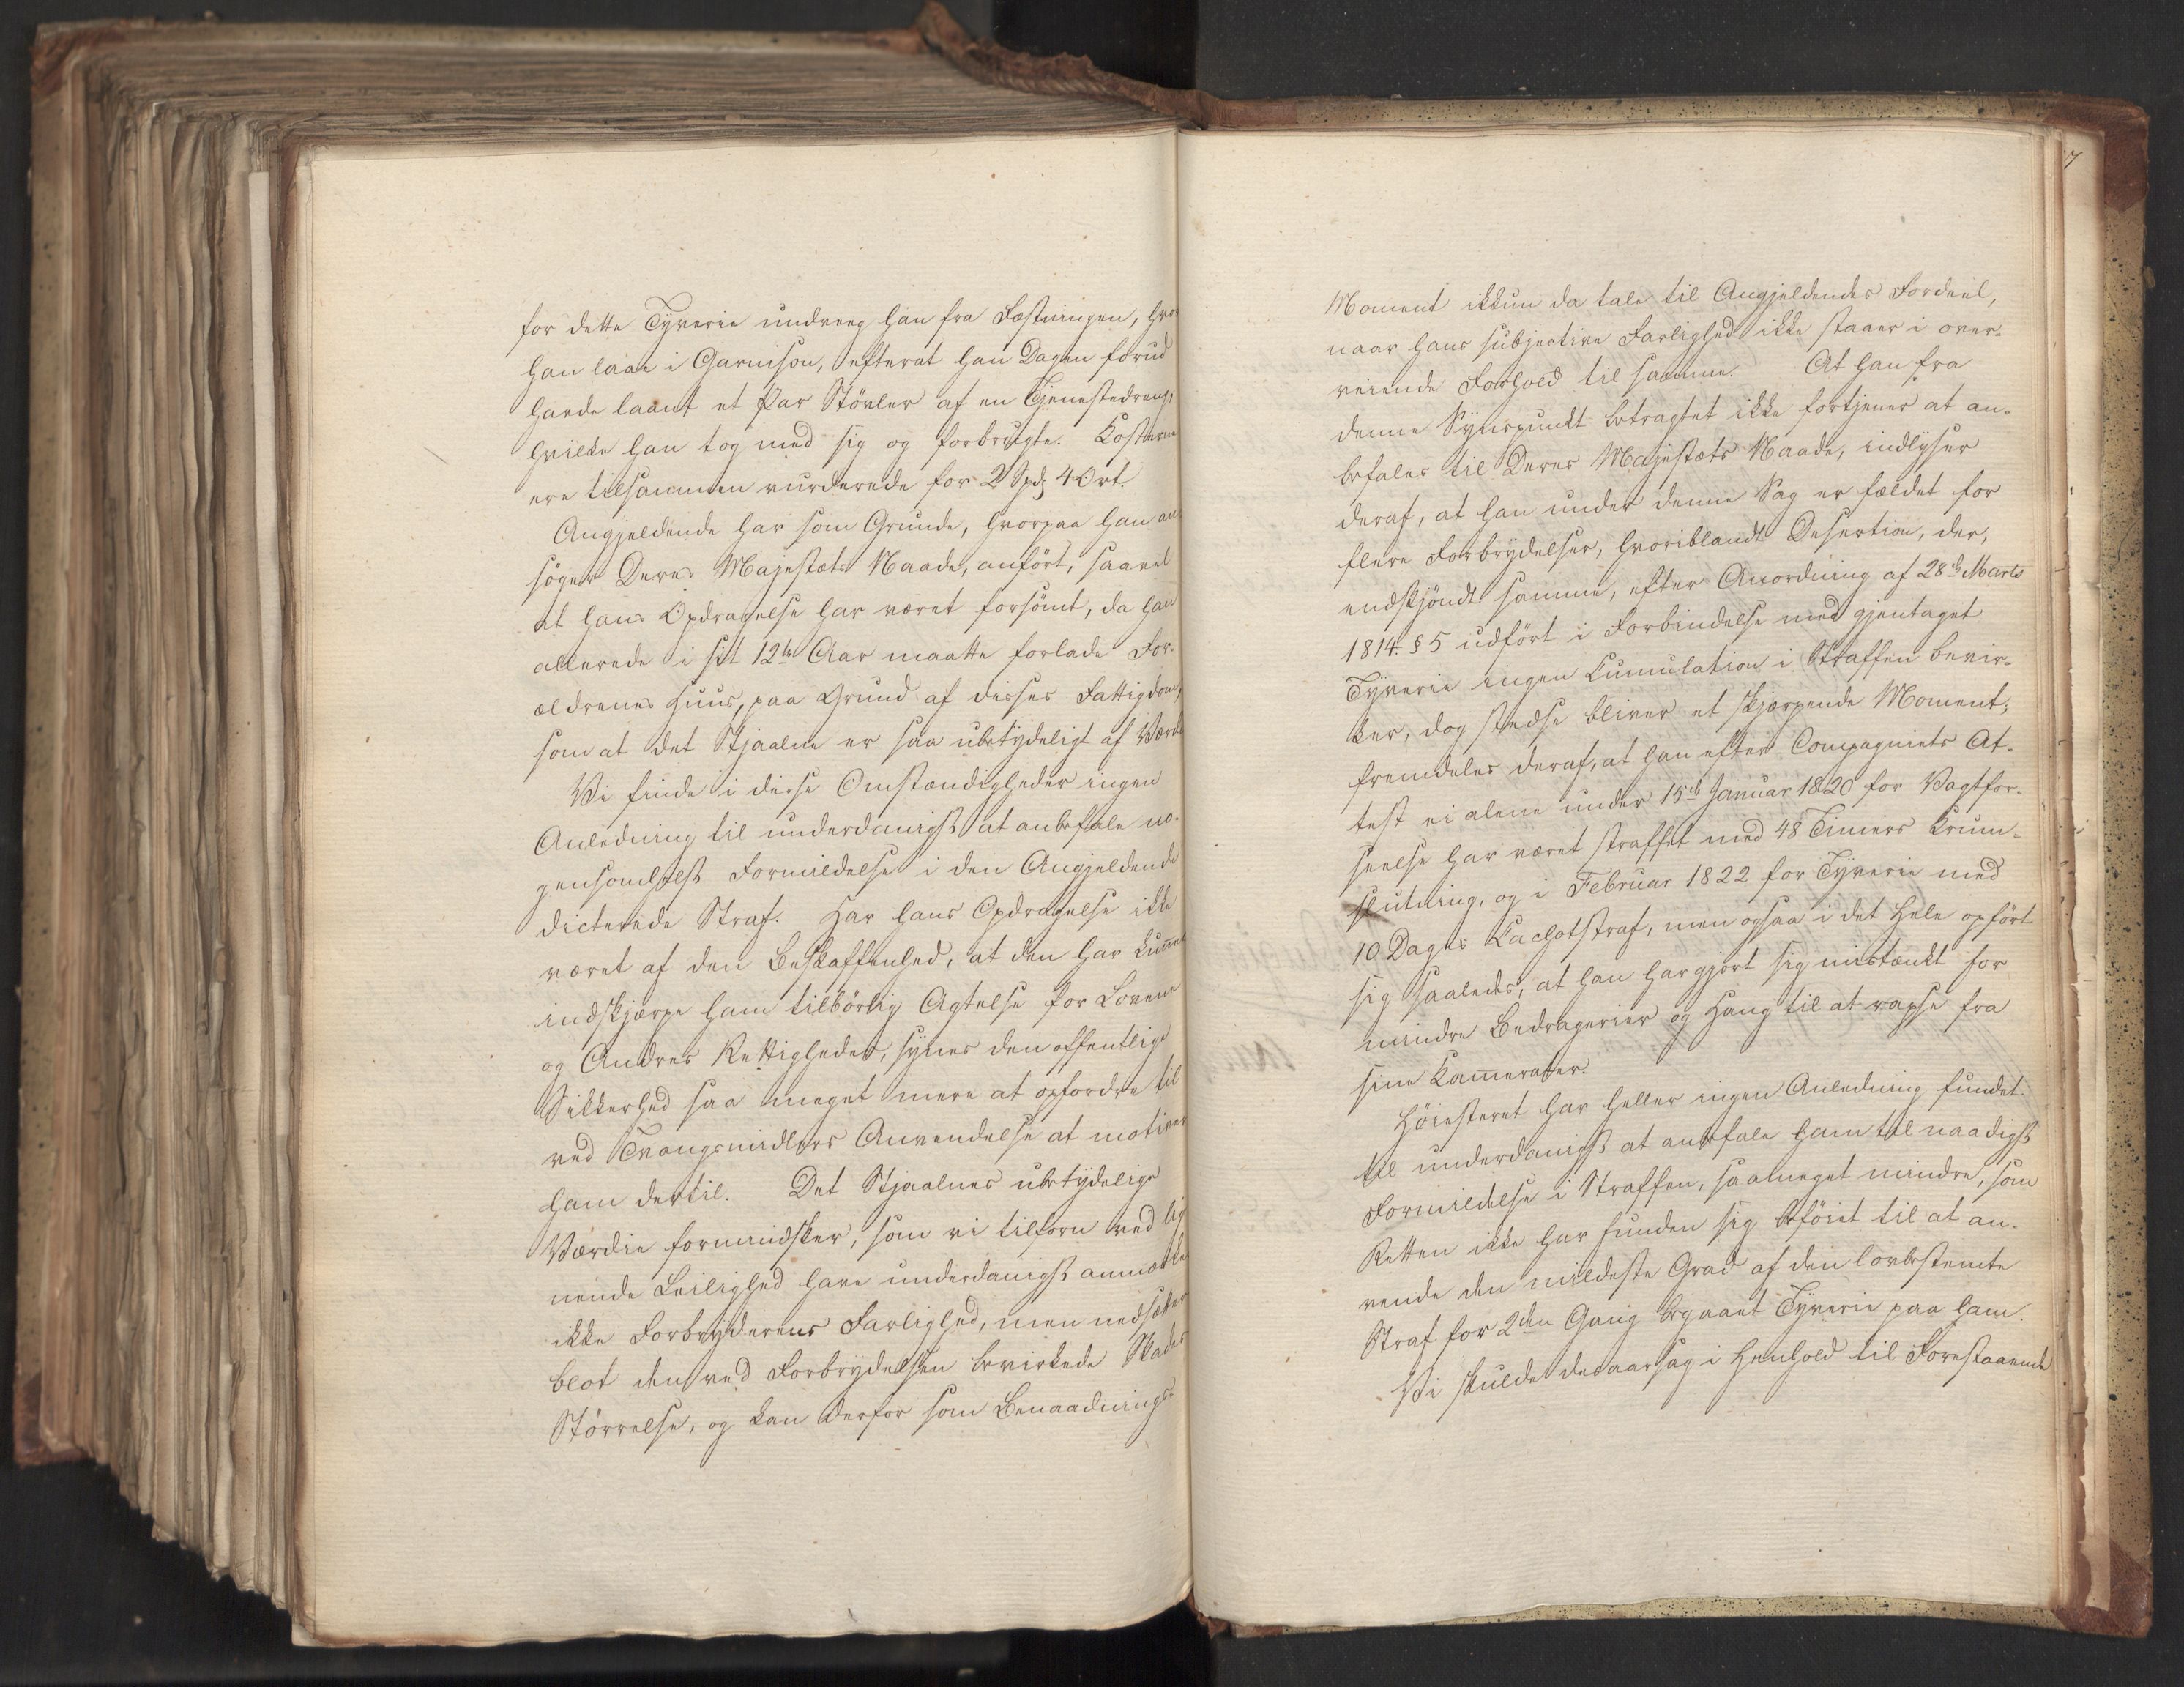 for dette Tyverie undveeg han fra Fæstningen, hvor
han laae i Garnison, efterat han Dagen forud
havde laant et Par Støvler af en Tjenestedreng,
hvilke han tog med sig og forbrugte. Kosterne
ere tilsammen vurderede for 2 Spd 4 Ort.
Angjeldende har som Grunde, hvorpaa han an-
søger Deres Majestæts Naade, anført, saavel
at hans Opdragelse har været forsømt, da han
allerede i sit 12te Aar maatte forlade For-
ældrenes Huus, paa Grund af disses Fattigdom,
som at det Stjaalne er saa ubetydeligt af Værdi
Vi finde i disse Omstændigheder ingen
Anledning til underdanigst at anbefale no-
gensomhelst Formildelse i den Angjeldende
dicterede Straf. Har hans Opdragelse ikke
været af den Beskaffenhed, at den har kunnet
indskjærpe ham tilbørlig Agtelse for Lovene
og Andres Rettigheder, synes den offentlige
Sikkerhed saa meget mere at opfordre til
ved Tvangsmidlers Anvendelse at motivere
ham dertil. Det Stjaalnes ubetydelige
Værdie formindsker, som vi tilforn ved lig
nende Leilighed have underdanigst anmærket
ikke Forbryderens Farlighed, men nedsætter
blot den ved Forbrydelsen bevirkede Skades
Størrelse, og kan derfor som Benaadnings-
7
Moment ikkun da tale til Angjeldendes Fordeel,
naar hans subjective Farlighed ikke staaer i over-
veiende Forhold til samme. At han fra
denne Synspunkt betragtet ikke fortjener at an-
befales til Deres Majestæts Naade, indlyser
deraf, at han under denne Sag er fældet for
flere Forbrydelser, hvoriblandt Desertion, der,
endskjøndt samme, efter Anordning af 28de Marts
1814 § 5 udført i Forbindelse med gjentaget
Tyverie ingen Cumulation i Straffen bevir-
ker, dog stedse bliver et skjærpende Moment;
fremdeles deraf, at han efter Compagniets At-
test ei alene under 15de Januar 1820 for Vagtfor-
seelse har været straffet med 48 Timers Krum-
slutning, og i Februar 1822 for Tyverie med
10 Dages Cachotstraf, men ogsaa i det Hele opført
sig saaledes, at han har gjort sig mistænkt for
mindre Bedragerier og Hang til at rapse fra
sine Kamerater.
Høiesteret har heller ingen Anledning fundet
til underdanigst at anbefale ham til naadigst
Formildelse i Straffen, saameget mindre, som
Retten ikke har funden sig beføiet til at an-
vende den mildeste Grad af den lovbestemte
Straf for 2den Gang begaaet Tyverie paa ham.
Vi skulde desaarsag i Henhold til Forestaaende